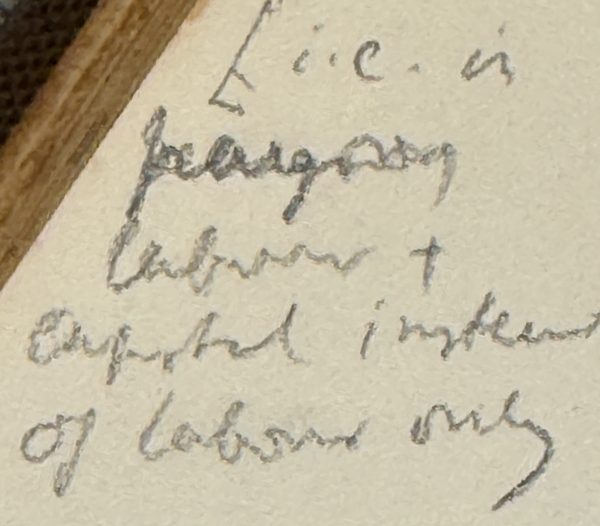 [ i.e. in
labour +
capital instead
of labour only